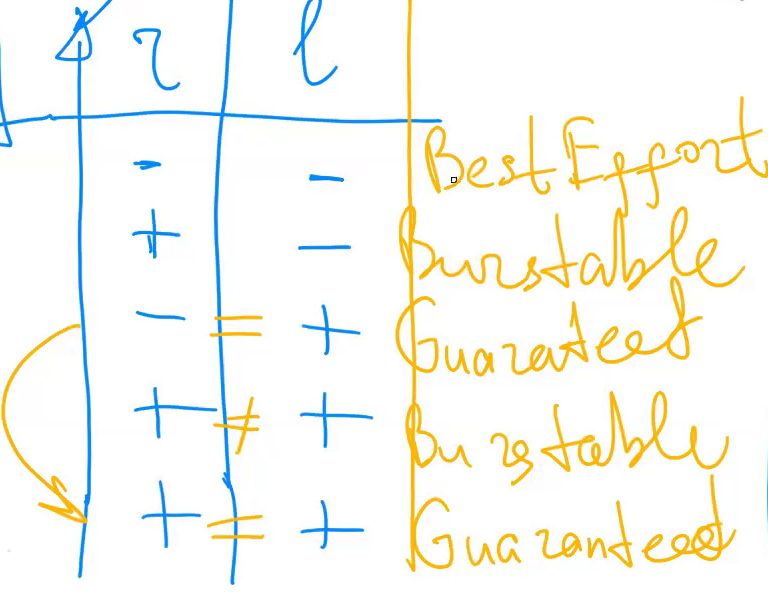 r l
- - BestEffort
+ - Burstable
- = + Guaranteed
+ ≠ + Burstable
+ = + Guaranteed